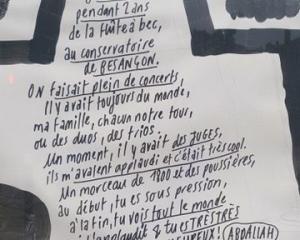 pendant 2 ans
de la flûte à bec,
au conservatoire
de BESANÇON.
ON faisait plein de concerts,
Il y avait toujours du monde,
ma famille, chacun notre tour,
ou des duos, des trios.
Un moment, il y avait des JUGES,
ils m'avaient applaudi et c'était très cool.
Un morceau de 1800 et des poussières,
au début, tu es sous pression,
à la fin, tu vois tout le monde
t'applaudit & tu es TRES TRES
HEUREUX! (ABDALLAH)